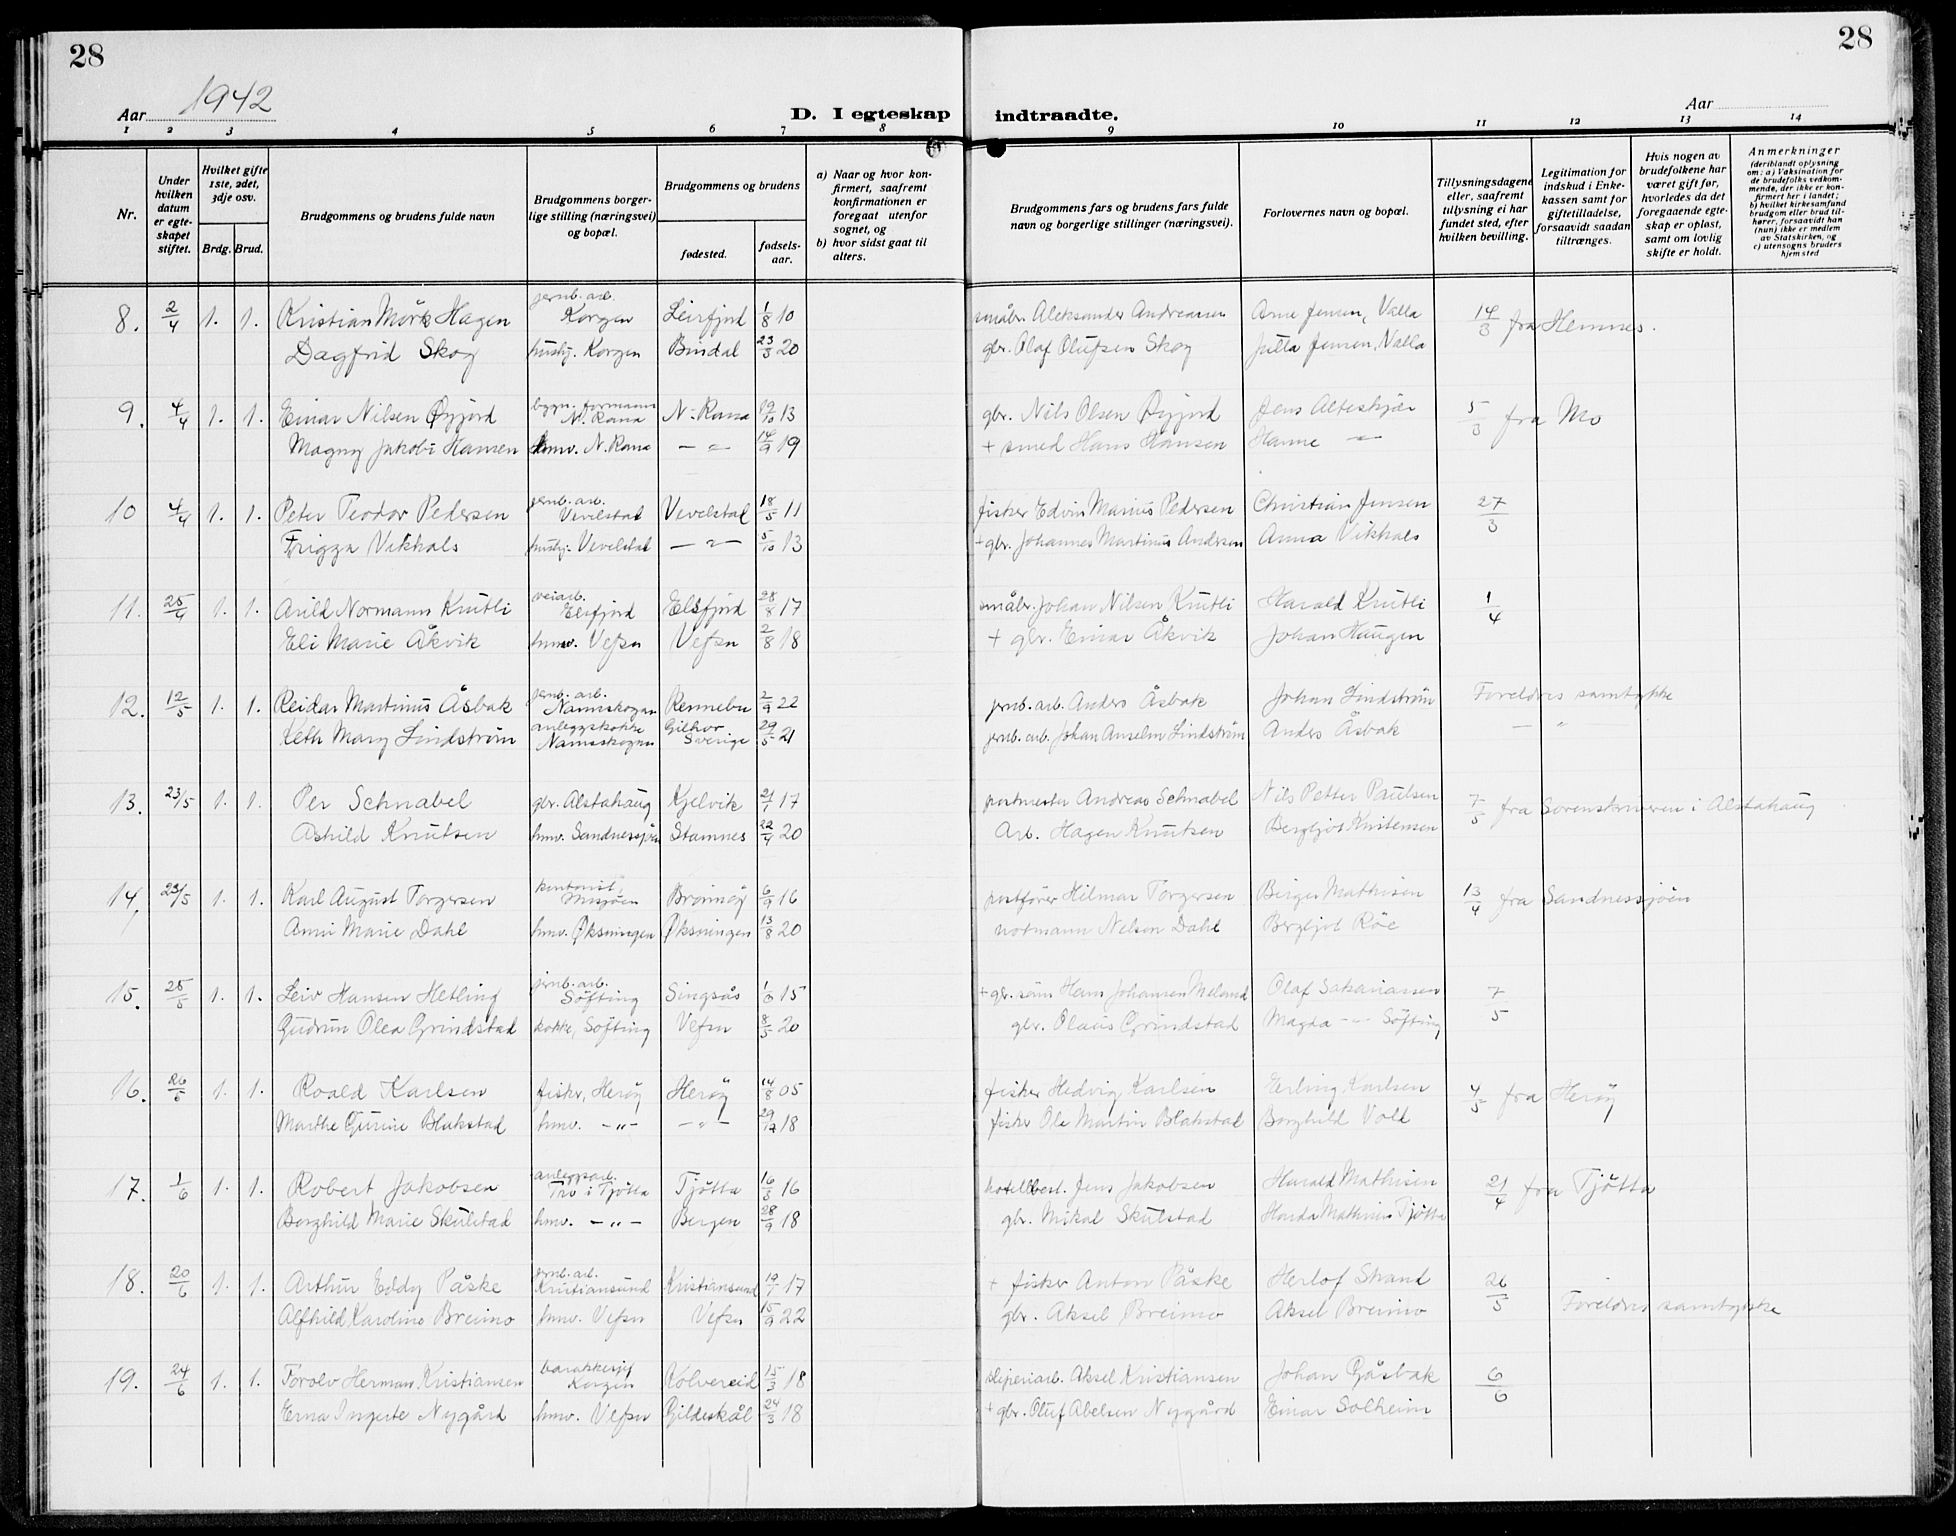 28
28
Aar 1942
D. I egteskap indtraadte.
Aar
1 2 3 4 5 6 7 8 9 10 11 12 13 14
Nr.
Under hvilken datum er egteskapet stiftet.
Hvilket gifte 1ste, 2det, 3dje osv.
Brdg. Brud.
Brudgommens og brudens fulde navn
Brudgommens borgerlige stilling (næringsvei) og bopæl.
Brudgommens og brudens
fødested.
fødselsaar.
a) Naar og hvor konfirmert, saafremt konfirmationen er foregaat utenfor sognet, og
b) hvor sidst gaat til alters.
Brudgommens fars og brudens fars fulde navn og borgerlige stillinger (næringsvei).
Forlovernes navn og bopæl.
Tillysningsdagene eller, saafremt tillysning ei har fundet sted, efter hvilken bevilling.
Legitimation for indskud i Enkekassen samt for giftetilladelse, forsaavidt saadan tiltrænges.
Hvis nogen av brudefolkene har været gift før, hvorledes da det foregaaende egteskap er opløst, samt om lovlig skifte er holdt.
Anmerkninger (deriblandt oplysning om: a) Vaksination for de brudefolks vedkommende, der ikke er konfirmert her i landet; b) hvilket kirkesamfund brudgom eller brud tilhører, forsaavidt han (hun) ikke er medlem av Statskirken, og c) utensogns bruders hjemsted
8. 2/4 1. 1. Kristian Mørk Hagen jernb. arb. Korgen Leirfjord 1/8 10 småbr. Aleksander Andreassen Arne Jensen, Valla 14/3 fra Hemnes.
Dagfrid Skog hushj. Korgen Bindal 23/3 20 gbr. Olaf Olufsen Skog Jutta Jensen, Valla
9. 4/4 1. 1. Einar Nilsen Øyjord bygn. formann N. Rana N. Rana 19/10 13 gbr. Nils Olsen Øyjord Jens Alteskjær 5/3 fra Mo
Magny Jakobi Hansen hmv. N. Rana — " — 14/9 19 + smed Hans Hansen Hanne — " —
10 4/4 1. 1. Peter Teodor Pedersen jernb. arb. Vevelstad Vevelstad 18/5 11 fisker Edvin Marius Pedersen Christian Jensen 27/3
Frigga Vikhals hushj. Vevelstad — " — 5/10 13 + gbr. Johannes Martinus Andersen Anna Vikhals
11. 25/4 1. 1. Arild Normann Knutli veiarb. Elsfjord Elsfjord 28/8 17 småbr. Johan Nilsen Knutli Harald Knutli 1/4
Eli Marie Åkvik hmv. Vefsn Vefsn 2/8 18 + gbr. Einar Åkvik Johan Haugen
12. 12/5 1. 1. Reidar Martinus Åsbak jernb. arb. Namsskogan Rennebu 2/9 22 jernb. arb. Anders Åsbak Johan Lindstrøm Foreldres samtykke
Keth Mary Lindstrøm anleggskokke Namsskogan Sverige 29/5 21 jernb. arb. Johan Anselm Lindstrøm Anders Åsbak — " —
13. 23/5 1. 1. Per Schnabel gbr. Alstahaug Kjelvik 21/1 17 postmester Andreas Schnabel Nils Petter Paulsen 7/5 fra Sorenskriveren i Alstahaug
Ashild Knutsen hmv. Sandnessjøen Stamnes 22/4 20 Arb. Hagen Knutsen Bergljot Kristensen
14. 23/5 1. 1. Karl August Torgersen kontorist, Mosjøen Brønnøy 6/9 16 postfører Hilmar Torgersen Birger Mathisen 13/4 fra Sandnessjöen
Anni Marie Dahl hmv. Øksningen Øksningen 13/8 20 notmann Nelson Dahl Bergljot Röe
15. 25/5 1. 1. Leiv Hansen Hetling jernb. arb. Söfting Singsås 1/9 15 + gbr. sönn Hans Johansen Meland Olaf Sakariassen 7/5
Gudrun Olea Grindstad kokke, Söfting Vefsn 8/5 20 gbr. Olaus Grindstad Magda — " — Söfting
16. 26/5 1. 1. Roald Karlsen fisker, Heröy Heröy 14/8 05 fisker Hedvig Karlsen Erling Karlsen 4/5 fra Heröy
Marthe Gurine Blakstad hmv. — " — — " — 29/12 18 fisker Ole Martin Blakstad Borghild Vold
17. 1/6 1. 1. Robert Jakobsen anleggsarb. Tro i Tjötta Tjötta 16/3 16 hotellbest. Jens Jakobsen Harald Mathisen 21/4 fra Tjötta
Borghild Marie Skulstad hmv. — " — Bergen 28/9 18 gbr. Mikal Skulstad Harda Mathisen Tjötta
18. 20/6 1. 1. Arthur Eddy Påske jernb. arb. Kristiansund Kristiansund 19/1 17 + fisker Anton Påske Herlof Strand 26/5
Alfhild Karoline Breimo hmv. Vefsn Vefsn 15/9 22 gbr. Aksel Breimo Aksel Breimo Foreldres samtykke
19. 24/6 1. 1. Torolv Herman Kristiansen barakkesjef Korgen Kolvereid 15/3 18 sliperiarb. Aksel Kristiansen Johan Gåsbak 6/6
Erna Ingerte Nygård hmv. Vefsn Gildeskål 24/3 18 + gbr. Oluf Abelsen Nygård Einar Solheim